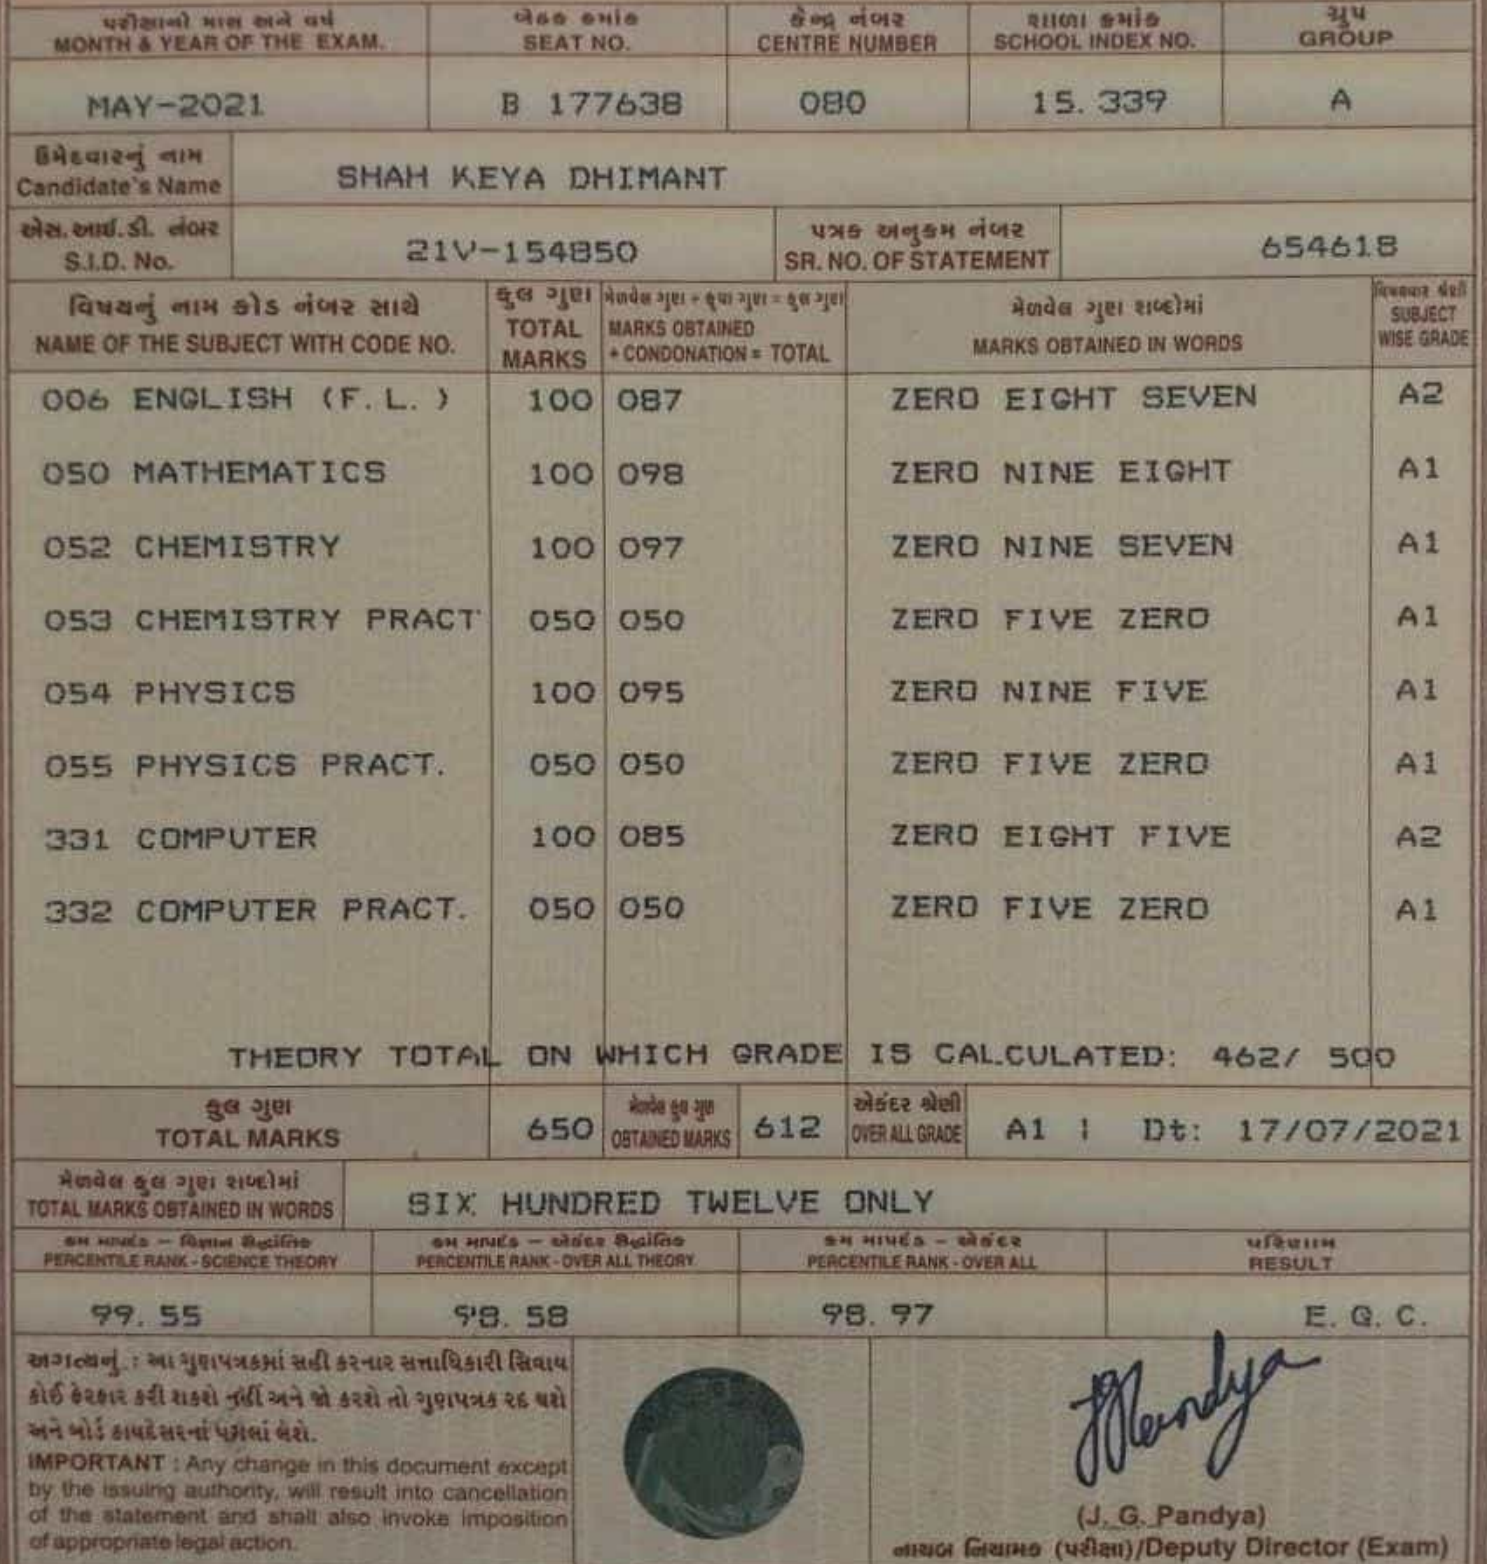 પરીક્ષાનો માસ અને વર્ષ બેઠક ક્રમાંક કેન્દ્ર નંબર શાળા ક્રમાંક ગ્રુપ
MONTH & YEAR OF THE EXAM. SEAT NO. CENTRE NUMBER SCHOOL INDEX NO. GROUP
MAY-2021 B 177638 080 15.339 A
ઉમેદવારનું નામ
Candidate's Name SHAH KEYA DHIMANT
એસ.આઈ.ડી. નંબર પત્રક અનુક્રમ નંબર
S.I.D. No. 21V-154850 SR. NO. OF STATEMENT 654618
વિષયનું નામ કોડ નંબર સાથે કુલ ગુણ મેળવેલ ગુણ + કૃપા ગુણ = કુલ ગુણ મેળવેલ ગુણ શબ્દોમાં વિષયવાર શ્રેણી
NAME OF THE SUBJECT WITH CODE NO. TOTAL MARKS MARKS OBTAINED + CONDONATION = TOTAL MARKS OBTAINED IN WORDS SUBJECT WISE GRADE
006 ENGLISH (F.L.) 100 087 ZERO EIGHT SEVEN A2
050 MATHEMATICS 100 098 ZERO NINE EIGHT A1
052 CHEMISTRY 100 097 ZERO NINE SEVEN A1
053 CHEMISTRY PRACT 050 050 ZERO FIVE ZERO A1
054 PHYSICS 100 095 ZERO NINE FIVE A1
055 PHYSICS PRACT. 050 050 ZERO FIVE ZERO A1
331 COMPUTER 100 085 ZERO EIGHT FIVE A2
332 COMPUTER PRACT. 050 050 ZERO FIVE ZERO A1
THEORY TOTAL ON WHICH GRADE IS CALCULATED: 462/ 500
કુલ ગુણ મેળવેલ કુલ ગુણ એકંદર શ્રેણી
TOTAL MARKS 650 OBTAINED MARKS 612 OVER ALL GRADE A1 | Dt: 17/07/2021
મેળવેલ કુલ ગુણ શબ્દોમાં
TOTAL MARKS OBTAINED IN WORDS SIX HUNDRED TWELVE ONLY
ક્રમ માપદંડ - વિજ્ઞાન સૈદ્ધાંતિક ક્રમ માપદંડ - એકંદર સૈદ્ધાંતિક ક્રમ માપદંડ - એકંદર પરિણામ
PERCENTILE RANK - SCIENCE THEORY PERCENTILE RANK - OVER ALL THEORY PERCENTILE RANK - OVER ALL RESULT
99.55 98.58 98.97 E.Q.C.
અગત્યનું : આ ગુણપત્રકમાં સહી કરનાર સત્તાધિકારી સિવાય
કોઈ ફેરફાર કરી શકશે નહીં અને જો કરશે તો ગુણપત્રક રદ થશે
અને બોર્ડ કાયદેસરનાં પગલાં લેશે.
IMPORTANT : Any change in this document except
by the issuing authority, will result into cancellation
of the statement and shall also invoke imposition
of appropriate legal action.
JGPandya
(J. G. Pandya)
નાયબ નિયામક (પરીક્ષા)/Deputy Director (Exam)